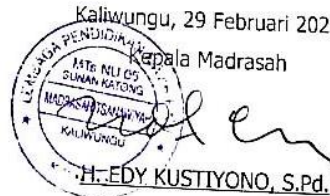 Kaliwungu, 29 Februari 202
Kepala Madrasah
LEMBAGA PENDIDIKAN
MTs NU 05
SUNAN KATONG
MADRASAH TSANAWIYAH
KALIWUNGU
H. EDY KUSTIYONO, S.Pd.